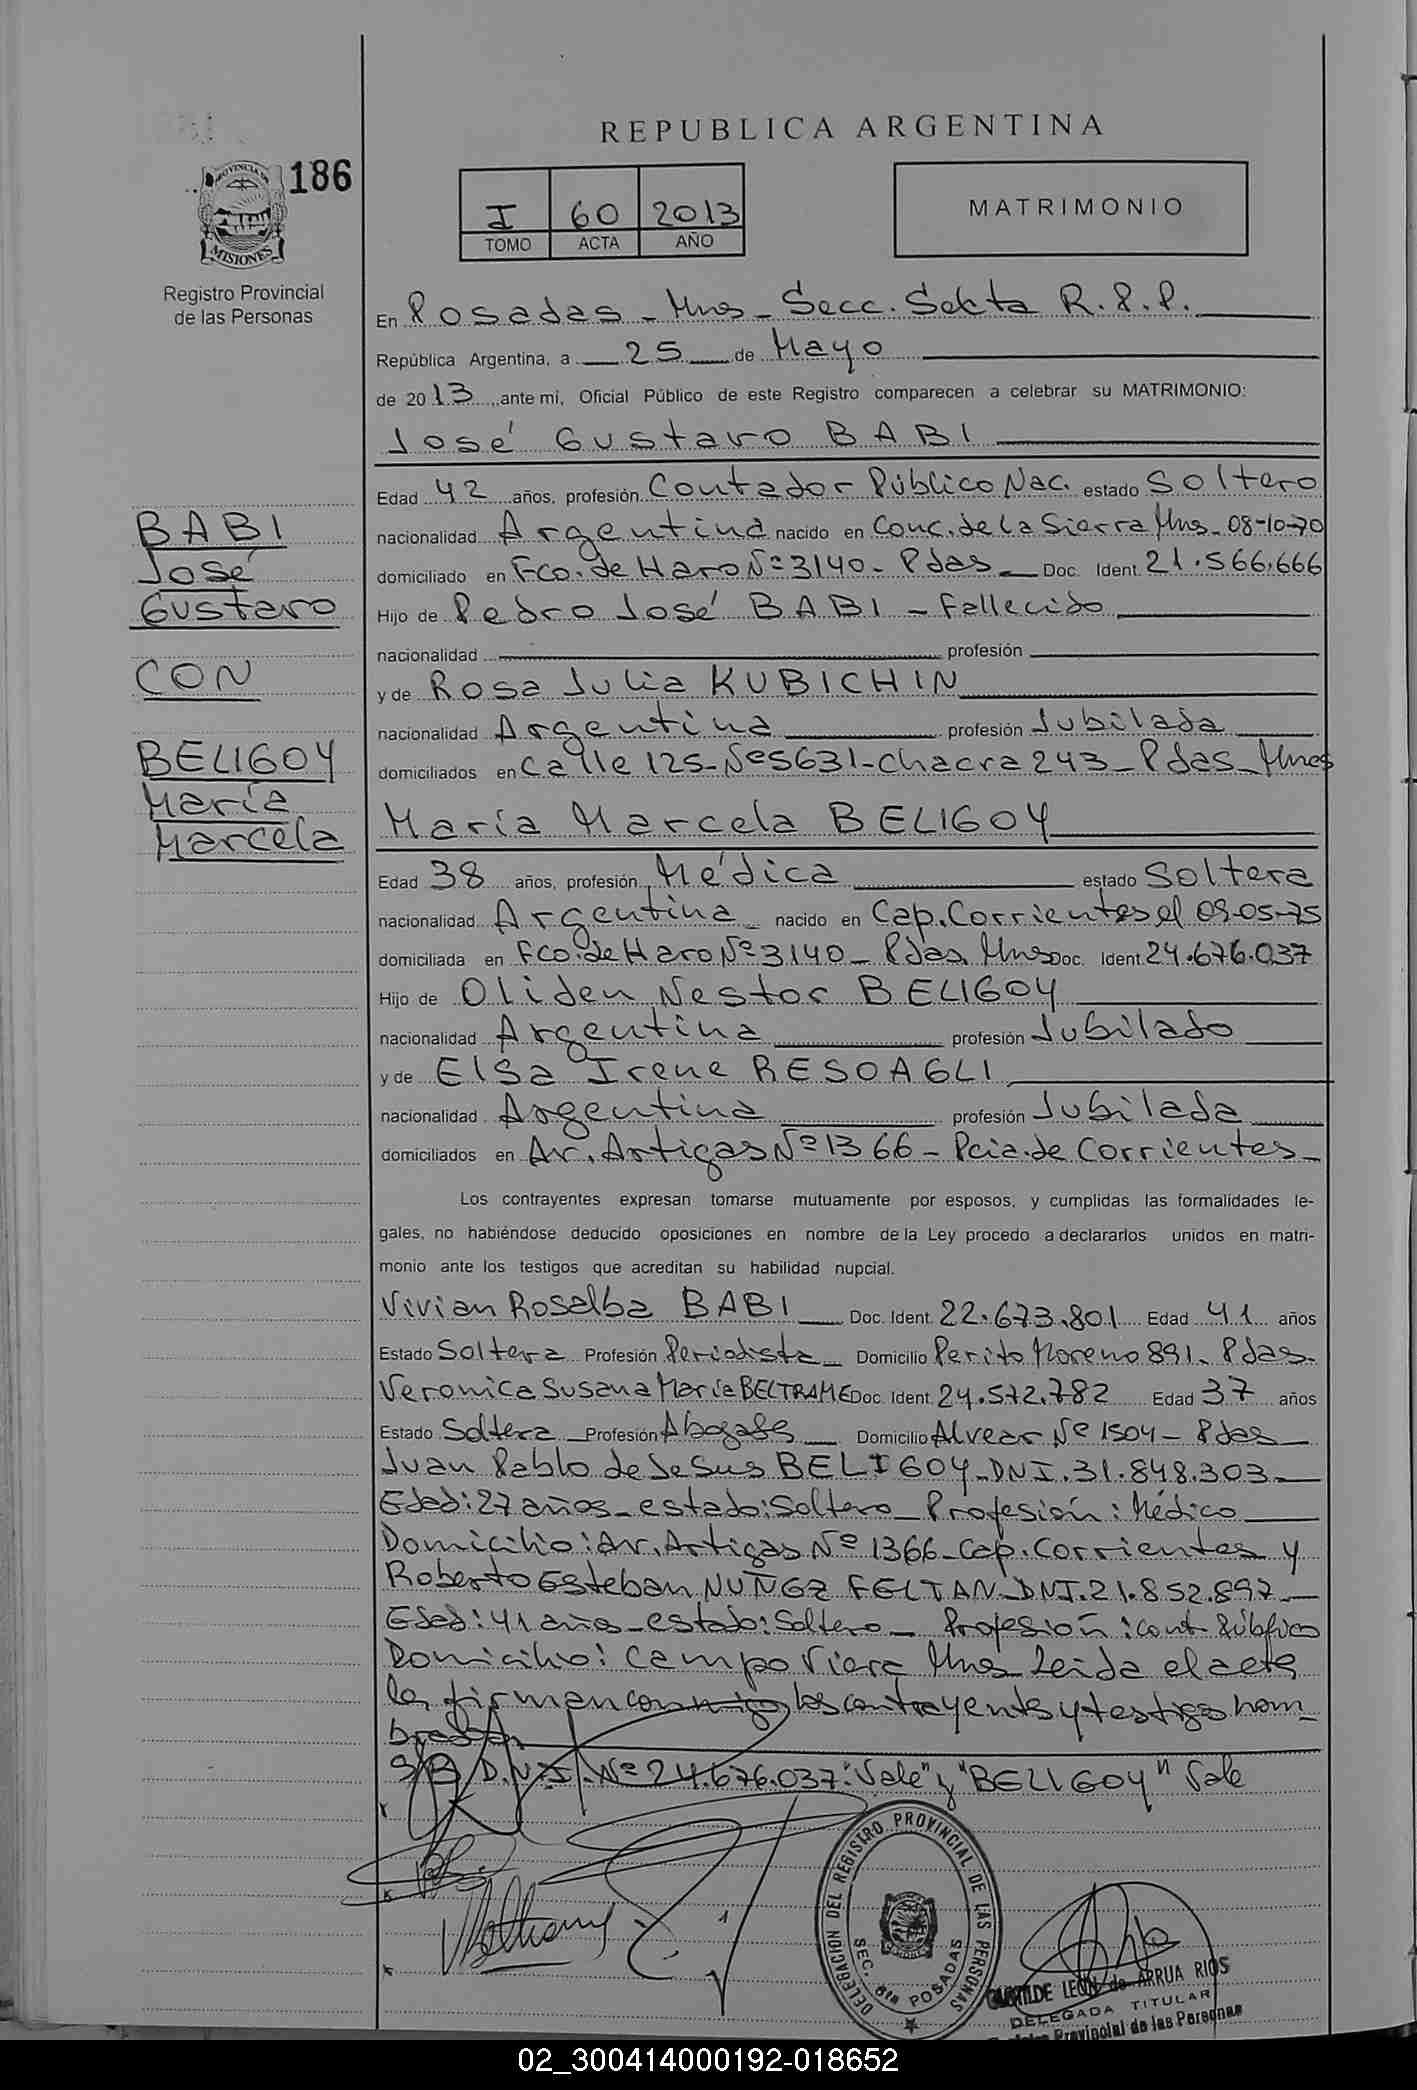 REPUBLICA ARGENTINA
186
PROVINCIA DE
MISIONES
Registro Provincial
de las Personas
I 60 2013
TOMO ACTA AÑO
MATRIMONIO
En Posadas - Mnes - Secc. Sexta R.P.P.
República Argentina, a 25 de Mayo
de 2013, ante mi, Oficial Público de este Registro comparecen a celebrar su MATRIMONIO:
José Gustavo BABI
Edad 42 años, profesión Contador Público Nac. estado Soltero
nacionalidad Argentina nacido en Conc. de la Sierra Mns - 08-10-70
domiciliado en Fco. de Haro Nº 3140 - Pdas - Doc. Ident. 21.566.666
Hijo de Pedro José BABI - Fallecido
nacionalidad profesión
y de Rosa Julia KUBICHIN
nacionalidad Argentina profesión Jubilada
domiciliados en Calle 125 - Nº 5631 - Chacra 243 - Pdas - Mnes
BABI
José
Gustavo
CON
BELIGOY
María
Marcela
María Marcela BELIGOY
Edad 38 años, profesión Médica estado Soltera
nacionalidad Argentina nacido en Cap. Corrientes el 09-05-75
domiciliada en Fco. de Haro Nº 3140 - Pdas Mns Doc. Ident. 24.676.037
Hijo de Oliden Nestor BELIGOY
nacionalidad Argentina profesión Jubilado
y de Elsa Irene RESOAGLI
nacionalidad Argentina profesión Jubilada
domiciliados en Av. Artigas Nº 1366 - Pcia. de Corrientes -
Los contrayentes expresan tomarse mutuamente por esposos, y cumplidas las formalidades le-
gales, no habiéndose deducido oposiciones en nombre de la Ley procedo a declararlos unidos en matri-
monio ante los testigos que acreditan su habilidad nupcial.
Vivian Rosalba BABI Doc. Ident. 22.673.801 Edad 41 años
Estado Soltera Profesión Periodista Domicilio Perito Moreno 891 - Pdas.
Veronica Susana María BELTRAME Doc. Ident. 24.572.782 Edad 37 años
Estado Soltera Profesión Abogada Domicilio Alvear Nº 1504 - Pdas
Juan Pablo de Jesus BELIGOY - DNI. 31.848.303
Edad: 27 años - estado: Soltero - Profesión: Médico
Domicilio: Av. Artigas Nº 1366 - Cap. Corrientes y
Roberto Esteban NUÑEZ FELTAN - DNI. 21.852.897
Edad: 41 años - estado: Soltero - Profesión: Cont. Público
Domicilio: Campo Viera Mns Leida el acta
la firman conmigo los contrayentes y testigos nom-
brados
S/B D.N.I. Nº 24.676.037: "Vale" y "BELIGOY" Vale
DELEGACION DEL REGISTRO PROVINCIAL DE LAS PERSONAS
SEC. 6ta POSADAS
LEON de ARRUA RIOS
DELEGADA TITULAR
Provincial de las Personas
02_300414000192-018652